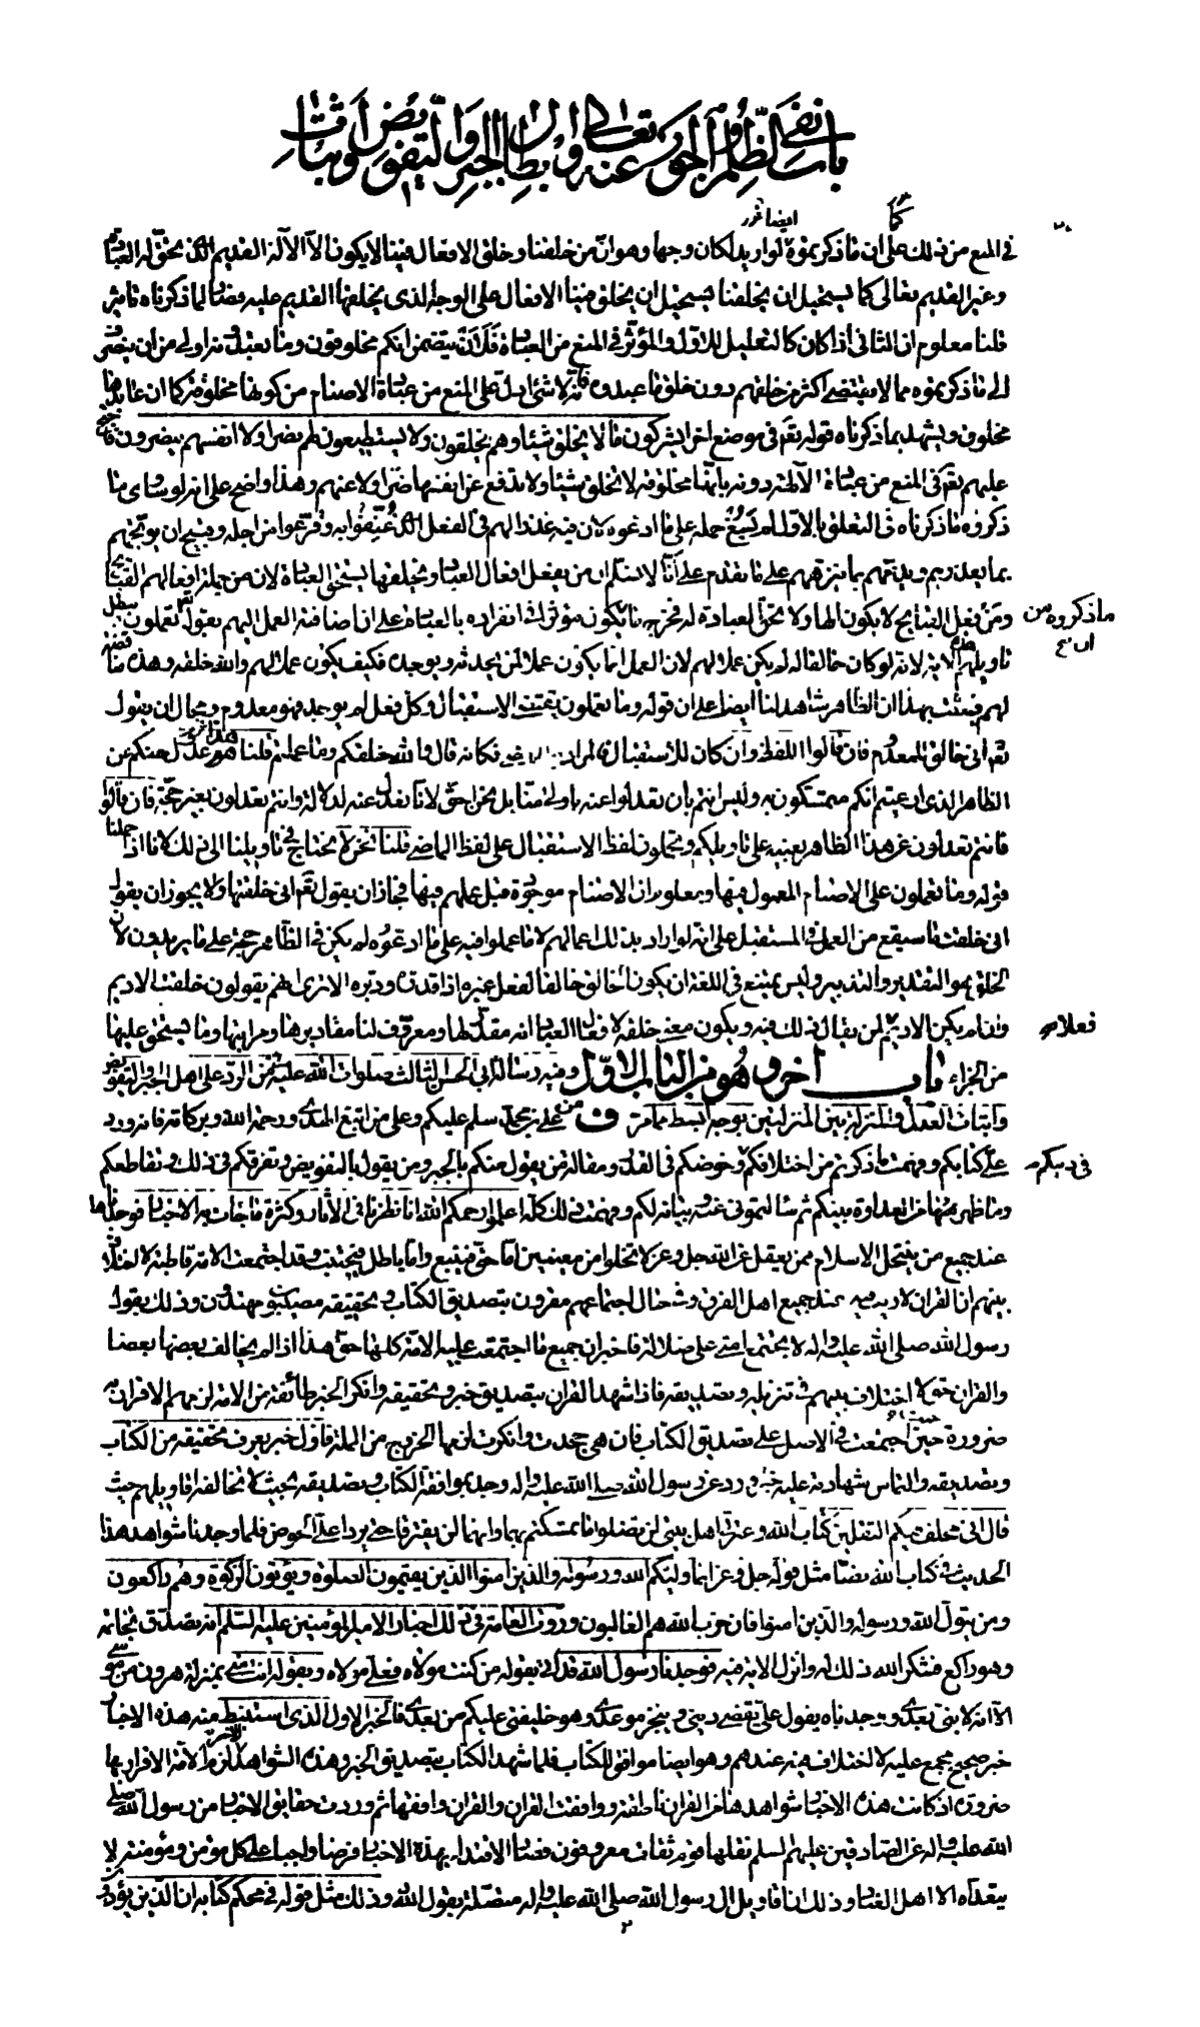 باب نفي الظلم والجور عنه تعالى وابطال الجبر والتفويض واثبات
ايضا
كما
في المنع من ذلك على ان ما ذكرتموه لو اريد لكان وجها وهو ان من خلقنا وخلق الافعال فينا لا يكون الا الاله القديم الذي تحق له العبادة
وغير القديم تعالى كما يستحيل ان يخلقنا يستحيل ان يخلق فينا الافعال على الوجه الذي يخلقها القديم عليه فصار لما ذكرناه تأثير
قلنا معلوم ان الثاني اذا كان كالتعليل للاول والمؤثر في المنع من العبادة فلأن يتضمن انكم مخلوقون وما تعبدونه اولى من ان ينصرف
الى ما ذكرتموه مما لا يقتضي اكثر من خلقهم دون خلق ما عبدوه فانه لا شئ ادل على المنع من عبادة الاصنام من كونها مخلوقة كما ان عابدها
مخلوق ويشهد بما ذكرناه قوله تعالى في موضع اخر ايشركون ما لا يخلق شيئا وهم يخلقون ولا يستطيعون لهم نصرا ولا انفسهم ينصرون فاحتج
عليهم تعالى في المنع من عبادة الآلهة دونه بانها مخلوقة لا تخلق شيئا ولا تدفع عن انفسها ضرا ولا عنهم وهذا واضح على انه لو ساوى ما
ذكروه ما ذكرناه في التعلق بالاول لم يسغ حمله على ما ادعوه لان فيه عذرا لهم في الفعل الذي عنفوا به وقرعوا من اجله وقبيح ان يوبخهم
بما يعذرهم ويذمهم بما ينزههم على ما تقدم على انا لا نسلم ان من يفعل افعال العباد ويخلقها يستحق العبادة لان من جملة افعالهم القبائح
ومن فعل القبائح لا يكون الها ولا تحق العبادة له فخرج ما ذكروه من ان يكون مؤثرا في انفراده بالعبادة على ان اضافته العمل اليهم بقوله تعملون يبطل
تأويلهم هذه الآية لانه لو كان خالقا له لم يكن عملا لهم لان العمل انما يكون عملا لمن يحدثه ويوجده فكيف يكون عملا لهم والله خلقه وهذه مناقضة
لهم فثبت بهذا ان الظاهر شاهد لنا ايضا على ان قوله وما تعملون يقتضي الاستقبال وكل فعل لم يوجد فهو معدوم ومحال ان يقول
تعالى اني خالق للمعدوم فان قالوا اللفظ وان كان للاستقبال فالمراد به الماضي فكانه قال والله خلقكم وما عملتم قلنا هو عدول منكم عن
الظاهر الذي ادعيتم انكم متمسكون به وليس انتم بان تعدلوا عنه باولى منا بل نحن احق لانا نعدل عنه لدلالة وانتم تعدلون بغير حجة فان قالوا
فانتم تعدلون عن هذا الظاهر بعينه على تأويلكم وتحملون لفظ الاستقبال على لفظ الماضي قلنا نحن لا نحتاج في تأويلنا الى ذلك لانا اذا حملنا
قوله وما تعملون على الاصنام المعمول فيها ومعلوم ان الاصنام موجودة قبل عملهم فيها فجاز ان يقول تعالى اني خلقتها ولا يجوز ان يقول
اني خلقت ما سيقع من العمل في المستقبل على انه لو اراد بذلك اعمالهم لا ما عملوا فيه على ما ادعوه لم يكن في الظاهر حجة على ما يريدون لان
الخلق هو التقدير والتدبير وليس يمتنع في اللغة ان يكون الخالق خالقا لفعل غيره اذا قدره ودبره الا ترى انهم يقولون خلقت الاديم
وان لم يكن الاديم فعلا لمن يقال ذلك فيه ويكون معنى خلقه لافعال العباد انه مقدر لها ومعرف لنا مقاديرها ومراتبها وما يستحق عليها
من الجزاء باب آخر وهو من الباب الاول وفيه رسالة ابي الحسن الثالث صلوات الله عليه في الرد على اهل الجبر والتفويض
واثبات العدل والمنزلة بين المنزلتين بوجه ابسط مما مر ف من علي بن محمد سلام عليكم وعلى من اتبع الهدى ورحمة الله وبركاته فانه ورد
علي كتابكم وفهمت ما ذكرتم من اختلافكم في دينكم وخوضكم في القدر ومقالة من يقول منكم بالجبر ومن يقول بالتفويض وتفرقكم في ذلك وتقاطعكم
وما ظهر من العداوة بينكم ثم سألتموني عنه وبيانه لكم وفهمت ذلك كله اعلموا رحمكم الله انا نظرنا في الآثار وكثرة ما جاءت به الاخبار فوجدناها
عند جميع من ينتحل الاسلام ممن يعقل عن الله جل وعز لا تخلوا من معنيين اما حق فيتبع واما باطل فيجتنب وقد اجتمعت الامة قاطبة لا اختلاف
بينهم ان القران لا ريب فيه عند جميع اهل الفرق وفي حال اجتماعهم مقرون بتصديق الكتاب وتحقيقه مصيبون مهتدون وذلك بقول
رسول الله صلى الله عليه واله لا يجتمع امتي على ضلالة فاخبر ان جميع ما اجتمعت عليه الامة كلها حق هذا اذا لم يخالف بعضها بعضا
والقران حق لا اختلاف بينهم في تنزيله وتصديقه فاذا شهد القران بتصديق خبر وتحقيقه وانكر الخبر طائفة من الامة لزمهم الاقرار به
ضرورة حين اجتمعت في الاصل على تصديق الكتاب فان هي جحدت وانكرت لزمها الخروج من الملة فاول خبر يعرف تحقيقه من الكتاب
وتصديقه والتماس شهادته عليه خبر ورد عن رسول الله صلى الله عليه واله وجد بموافقة الكتاب وتصديقه بحيث لا تخالفه اقاويلهم حيث
قال اني مخلف فيكم الثقلين كتاب الله وعترتي اهل بيتي لن تضلوا ما تمسكتم بهما وانهما لن يفترقا حتى يردا علي الحوض فلما وجدنا شواهد هذا
الحديث في كتاب الله نصا مثل قوله جل وعز انما وليكم الله ورسوله والذين امنوا الذين يقيمون الصلوة ويؤتون الزكوة وهم راكعون
ومن يتول الله ورسوله والذين امنوا فان حزب الله هم الغالبون وروت العامة في ذلك اخبارا لامير المؤمنين عليه السلم انه تصدق بخاتمه
وهو راكع فشكر الله ذلك له وانزل الآية فيه فوجدنا رسول الله قد اتى بقوله من كنت مولاه فعلي مولاه وبقوله انت مني بمنزلة هرون من موسى
الا انه لا نبي بعدي ووجدناه يقول علي يقضي ديني وينجز موعدي وهو خليفتي عليكم من بعدي فالخبر الاول الذي استنبط منه هذه الاخبار
خبر صحيح مجمع عليه لا اختلاف فيه عندهم وهو ايضا موافق للكتاب فلما شهد الكتاب بتصديق الخبر وهذه الشواهد الاخر لزم الامة الاقرار بها
ضرورة اذ كانت هذه الاخبار شواهدها من القران ناطقة ووافقت القران والقران وافقها ثم وردت حقايق الاخبار من رسول الله صلى
الله عليه واله عن الصادقين عليهم السلم نقلها قوم ثقات معروفون فصار الاقتداء بهذه الاخبار فرضا واجبا على كل مؤمن ومؤمنة لا
يتعداه الا اهل العناد وذلك ان اقاويل آل رسول الله صلى الله عليه واله متصلة بقول الله وذلك مثل قوله في محكم كتابه ان الذين يؤذون
ما ذكروه من
ان
فعلا
في دينكم
٢